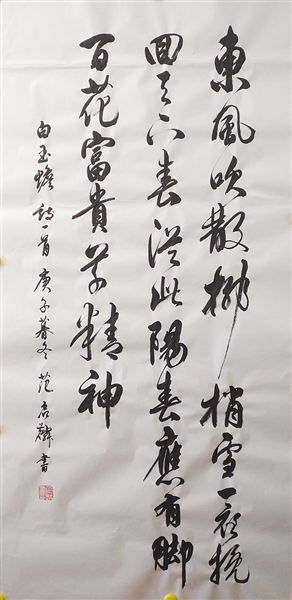 東風吹散柳梢雪一夜挽
回天下春從此陽春應有脚
百花富貴草精神
白玉蟾詩一首庚子暮冬范書